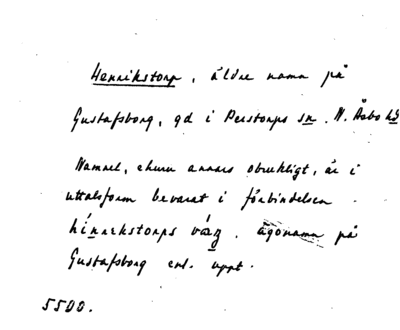 Henrikstorp, äldre namn på
Gustafsborg, gd i Perstorps sn. N. Åsbo hd
Namnet, ehuru annars obrukligt, är i
uttalsform bevarat i förbindelsen
hínnrekstorps vä́g, ägonamn på
Gustafsborg enl. uppt.
5500.